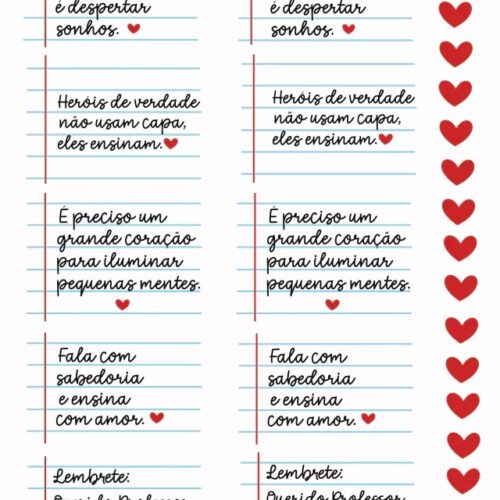 é despertar
sonhos.
é despertar
sonhos.
Heróis de verdade
não usam capa,
eles ensinam.
Heróis de verdade
não usam capa,
eles ensinam.
É preciso um
grande coração
para iluminar
pequenas mentes.
É preciso um
grande coração
para iluminar
pequenas mentes.
Fala com
sabedoria
e ensina
com amor.
Fala com
sabedoria
e ensina
com amor.
Lembrete:
Querido Professor
Lembrete:
Querido Professor